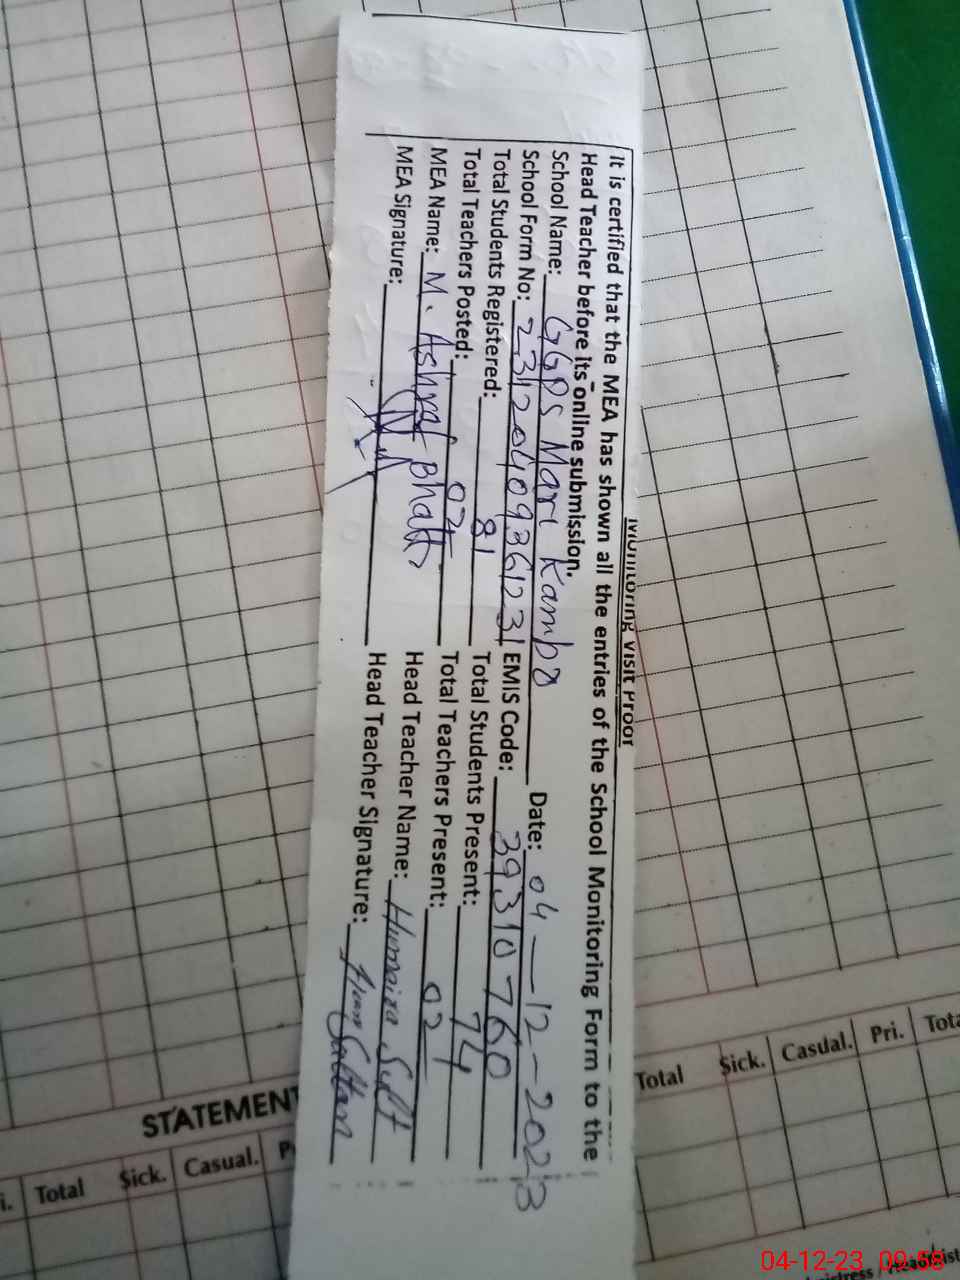 Monitoring Visit Proof
It is certified that the MEA has shown all the entries of the School Monitoring Form to the
Head Teacher before its online submission.
School Name: GGPS Mari Kambo Date: 04-12-2023
School Form No: 23120409361231 EMIS Code: 39310760
Total Students Registered: 81 Total Students Present: 74
Total Teachers Posted: 02 Total Teachers Present: 02
MEA Name: M. Ashraf Bhatti Head Teacher Name: Humaira
MEA Signature: Head Teacher Signature:
Total Sick. Casual. Pri. Total
STATEMENT
i. Total Sick. Casual. P
04-12-23 09:58